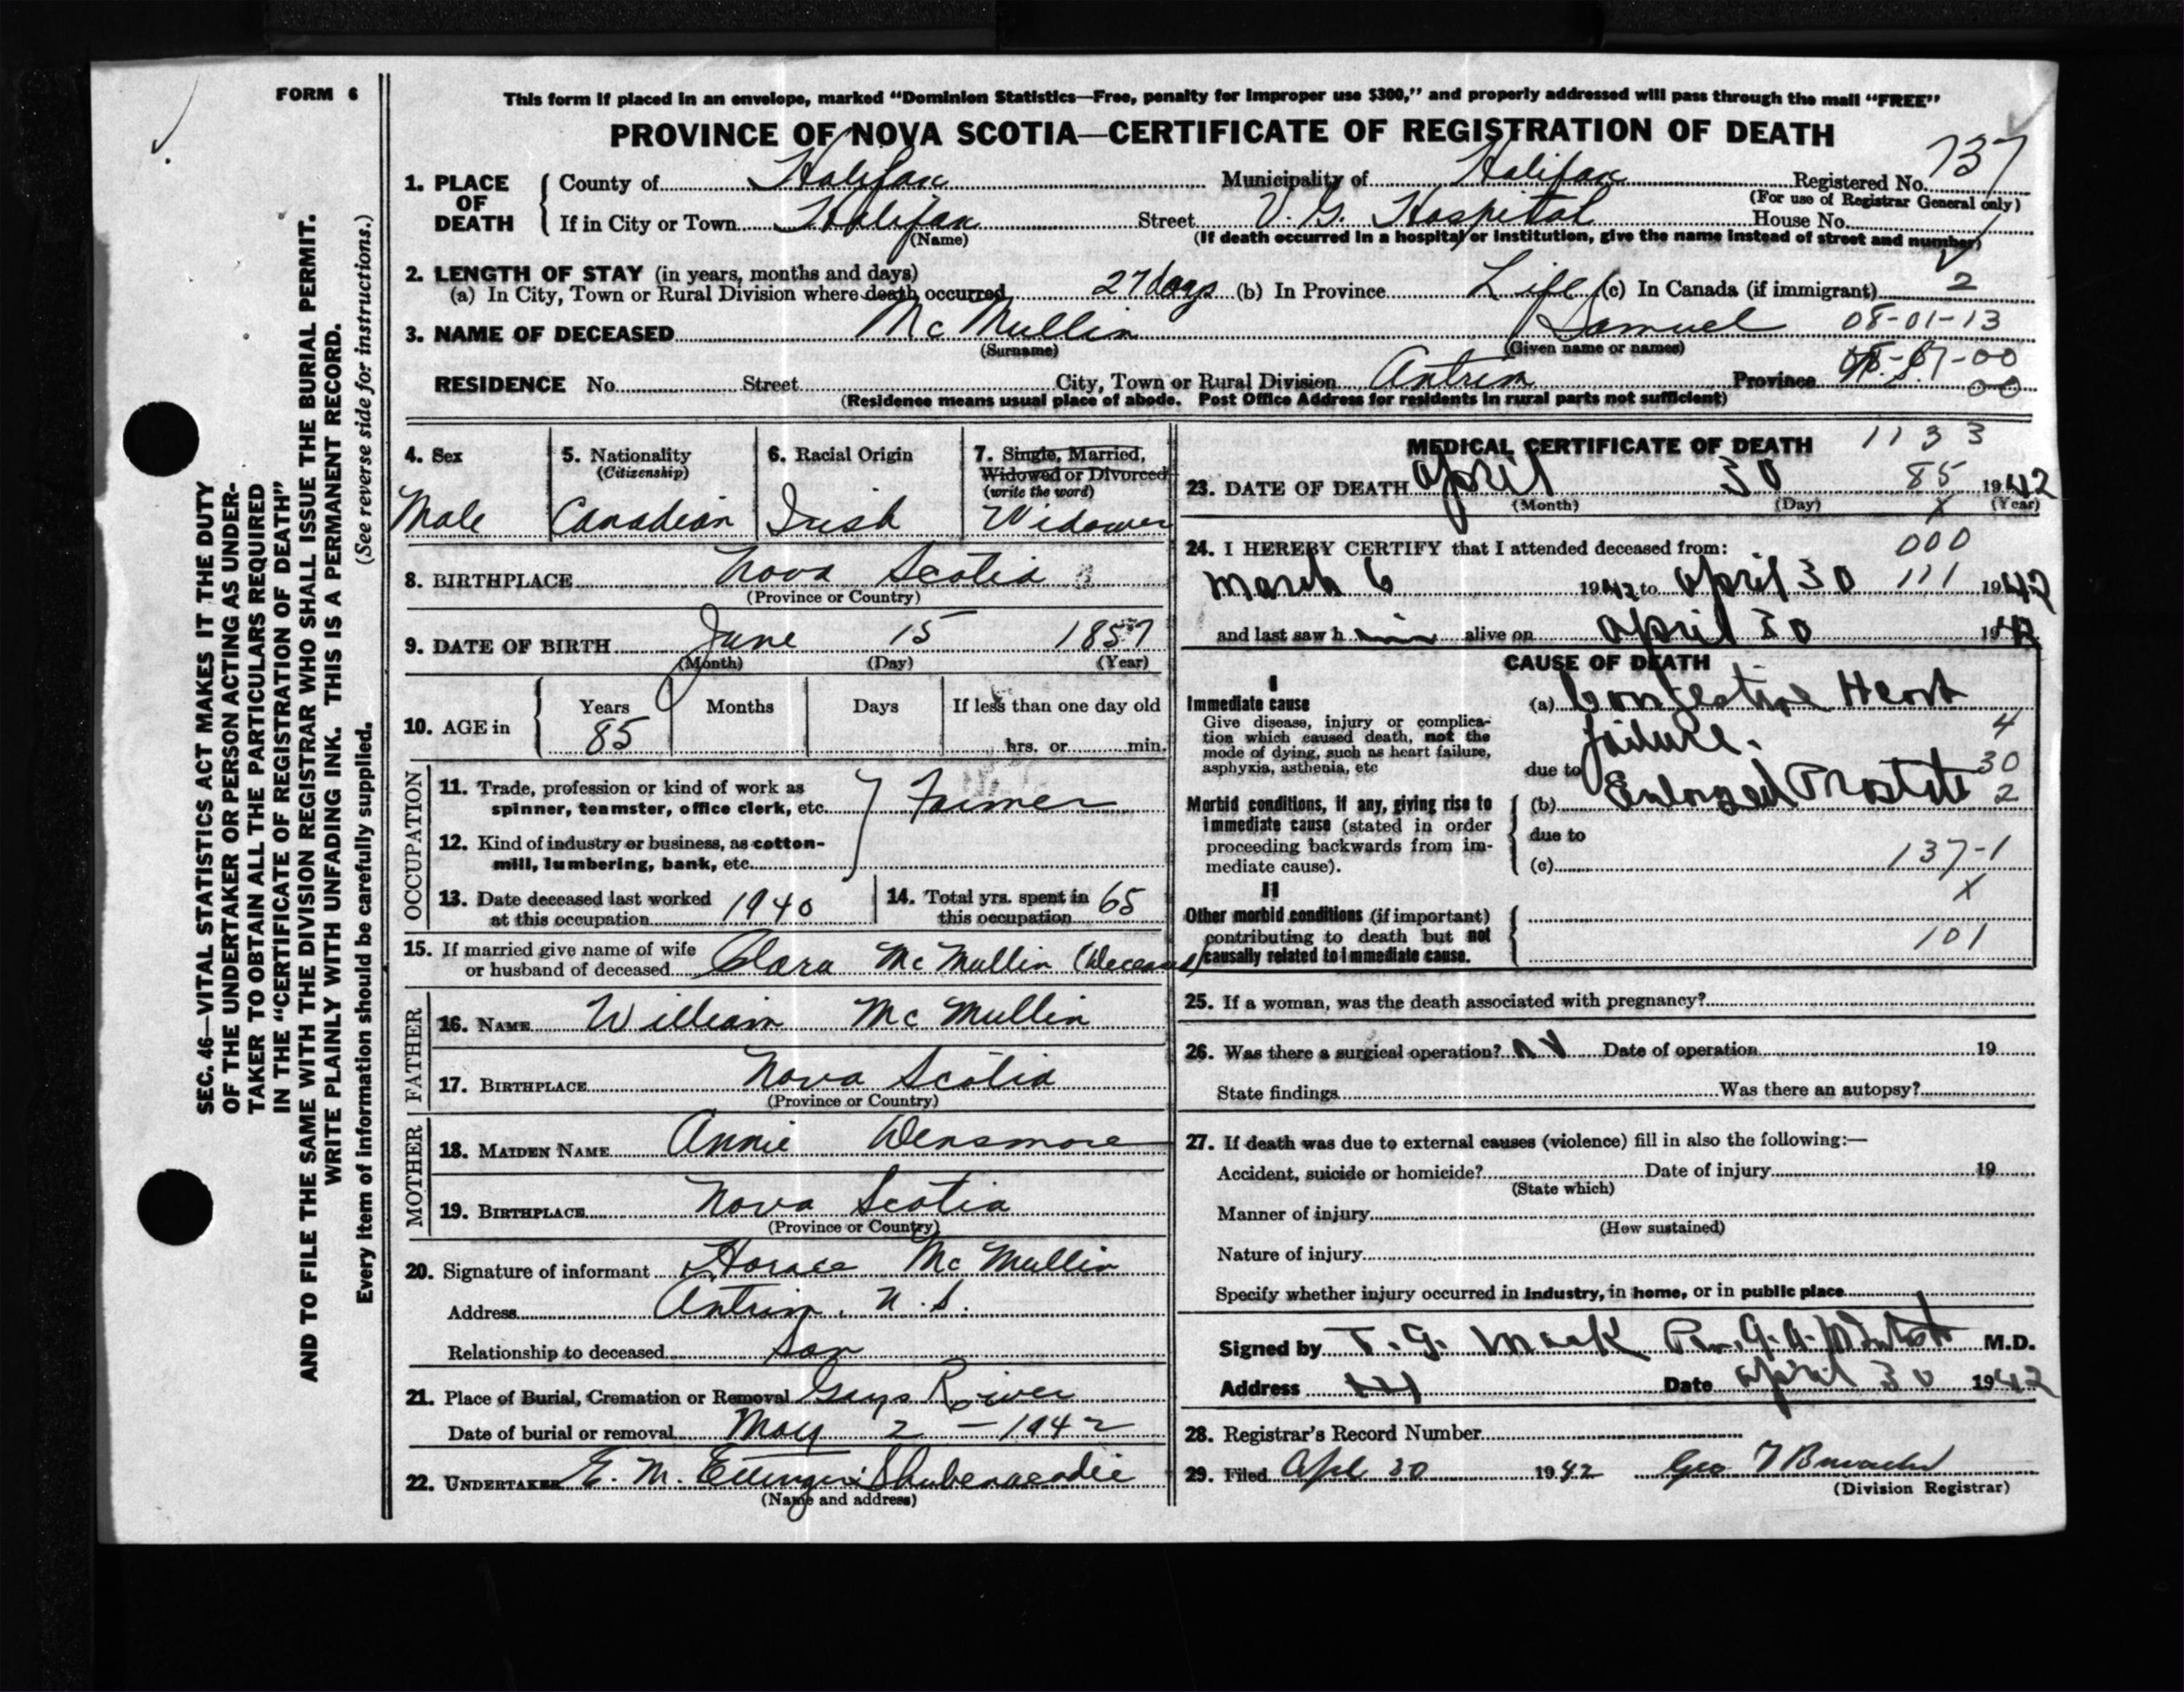 FORM 6
This form if placed in an envelope, marked "Dominion Statistics—Free, penalty for improper use $300," and properly addressed will pass through the mail "FREE"
PROVINCE OF NOVA SCOTIA—CERTIFICATE OF REGISTRATION OF DEATH
737
1. PLACE OF DEATH { County of Halifax Municipality of Halifax Registered No.
(For use of Registrar General only)
If in City or Town Halifax Street V. G. Hospital House No.
(Name) (If death occurred in a hospital or institution, give the name instead of street and number)
2. LENGTH OF STAY (in years, months and days)
(a) In City, Town or Rural Division where death occurred 27 days (b) In Province Life (c) In Canada (if immigrant) 2
3. NAME OF DECEASED McMullin Samuel 08-01-13
(Surname) (Given name or names)
RESIDENCE No. Street City, Town or Rural Division Antrim Province N.S.
00
(Residence means usual place of abode. Post Office Address for residents in rural parts not sufficient)
4. Sex
Male
5. Nationality
(Citizenship)
Canadian
6. Racial Origin
Irish
7. Single, Married,
Widowed or Divorced
(write the word)
Widower
8. BIRTHPLACE Nova Scotia
(Province or Country)
9. DATE OF BIRTH June 15 1857
(Month) (Day) (Year)
10. AGE in { Years Months Days If less than one day old
85 hrs. or min.
OCCUPATION
11. Trade, profession or kind of work as
spinner, teamster, office clerk, etc. Farmer
12. Kind of industry or business, as cotton-
mill, lumbering, bank, etc.
13. Date deceased last worked
at this occupation 1940
14. Total yrs. spent in
this occupation 65
15. If married give name of wife
or husband of deceased Clara McMullin (Deceased)
FATHER
16. NAME William McMullin
17. BIRTHPLACE Nova Scotia
(Province or Country)
MOTHER
18. MAIDEN NAME Annie Densmore
19. BIRTHPLACE Nova Scotia
(Province or Country)
20. Signature of informant Horace McMullin
Address Antrim, N.S.
Relationship to deceased Son
21. Place of Burial, Cremation or Removal Gays River
Date of burial or removal May 2 – 1942
22. UNDERTAKER E. M. Ettinger Shubenacadie
(Name and address)
MEDICAL CERTIFICATE OF DEATH 1133
85
23. DATE OF DEATH April 30 1942
(Month) (Day) (Year)
X
24. I HEREBY CERTIFY that I attended deceased from: 000
March 6 1942 to April 30 111 1942
and last saw h im alive on April 30 1942
CAUSE OF DEATH
I
Immediate cause
Give disease, injury or complica-
tion which caused death, not the
mode of dying, such as heart failure,
asphyxia, asthenia, etc
(a) Congestive Heart
failure. 4
due to 30
Morbid conditions, if any, giving rise to
immediate cause (stated in order
proceeding backwards from im-
mediate cause).
(b) Enlarged Prostate 2
due to
(c) 137-1
X
II
Other morbid conditions (if important)
contributing to death but not
causally related to immediate cause.
101
25. If a woman, was the death associated with pregnancy?
26. Was there a surgical operation? Date of operation 19
State findings Was there an autopsy?
27. If death was due to external causes (violence) fill in also the following:—
Accident, suicide or homicide? Date of injury 19
(State which)
Manner of injury
(How sustained)
Nature of injury
Specify whether injury occurred in industry, in home, or in public place
Signed by T. G. Mack M.D.
Address Date April 30 1942
28. Registrar's Record Number
29. Filed Apl 30 1942 Geo
(Division Registrar)
SEC. 46—VITAL STATISTICS ACT MAKES IT THE DUTY
OF THE UNDERTAKER OR PERSON ACTING AS UNDER-
TAKER TO OBTAIN ALL THE PARTICULARS REQUIRED
IN THE "CERTIFICATE OF REGISTRATION OF DEATH"
AND TO FILE THE SAME WITH THE DIVISION REGISTRAR WHO SHALL ISSUE THE BURIAL PERMIT.
WRITE PLAINLY WITH UNFADING INK. THIS IS A PERMANENT RECORD.
Every item of information should be carefully supplied. (See reverse side for instructions.)